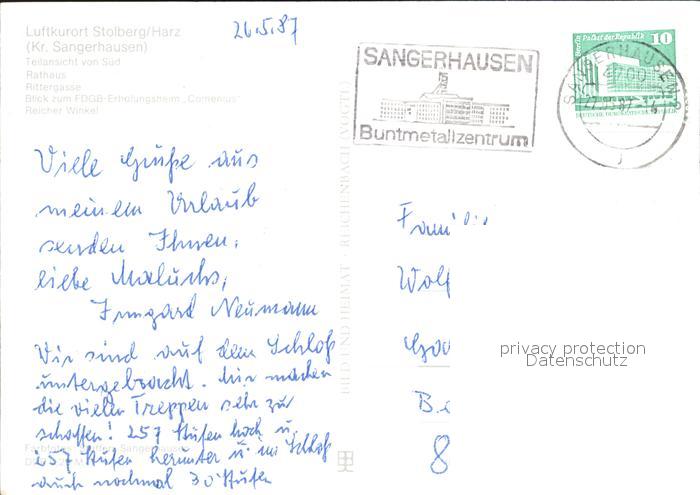 Luftkurort Stolberg/Harz
(Kr. Sangerhausen)
Teilansicht von Süd
Rathaus
Rittergasse
Blick zum FDGB-Erholungsheim „Comenius"
Reicher Winkel
26.5.87
SANGERHAUSEN
Buntmetallzentrum
Berlin Palast der Republik 10
DEUTSCHE DEMOKRATISCHE
SANGERHAUSEN 2
4700
27.05.87-14
Viele Grüße aus
meinem Urlaub
senden Ihnen,
liebe
Irmgard Neumann
Wir sind auf dem Schloß
untergebracht. Mir machen
die vielen Treppen sehr zu
schaffen! 257 Stufen hoch u.
257 Stufen herunter u. im Schloß
auch nochmal 30 Stufen
BILD UND HEIMAT · REICHENBACH (VOGTL)
Fami
Wolf
Be
8
privacy protection
Datenschutz